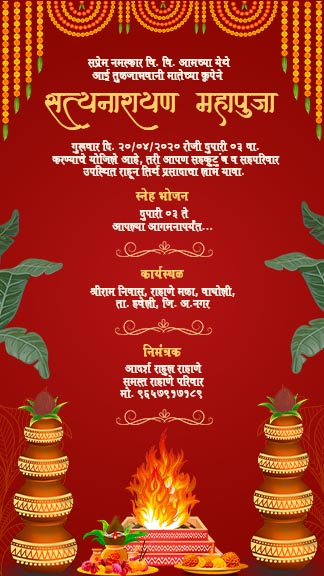 सप्रेम नमस्कार वि. वि. आमच्या येथे
आई तुळजाभवानी मातेच्या कृपेने
सत्यनारायण महापुजा
गुरूवार दि. २०/०४/२०२० रोजी दुपारी ०३ वा.
करण्याचे योजिले आहे, तरी आपण सहकुटुंब व सहपरिवार
उपस्थित राहून तिर्थ प्रसादाचा लाभ घ्यावा.
स्नेह भोजन
दुपारी ०३ ते
आपल्या आगमनापर्यंत...
कार्यस्थळ
श्रीराम निवास, राहाणे मळा, वाघोली,
ता. हवेली, जि. अ.नगर
निमंत्रक
आदर्श राहुल राहाणे
समस्त राहाणे परिवार
मो. ९६५७९१७१८९